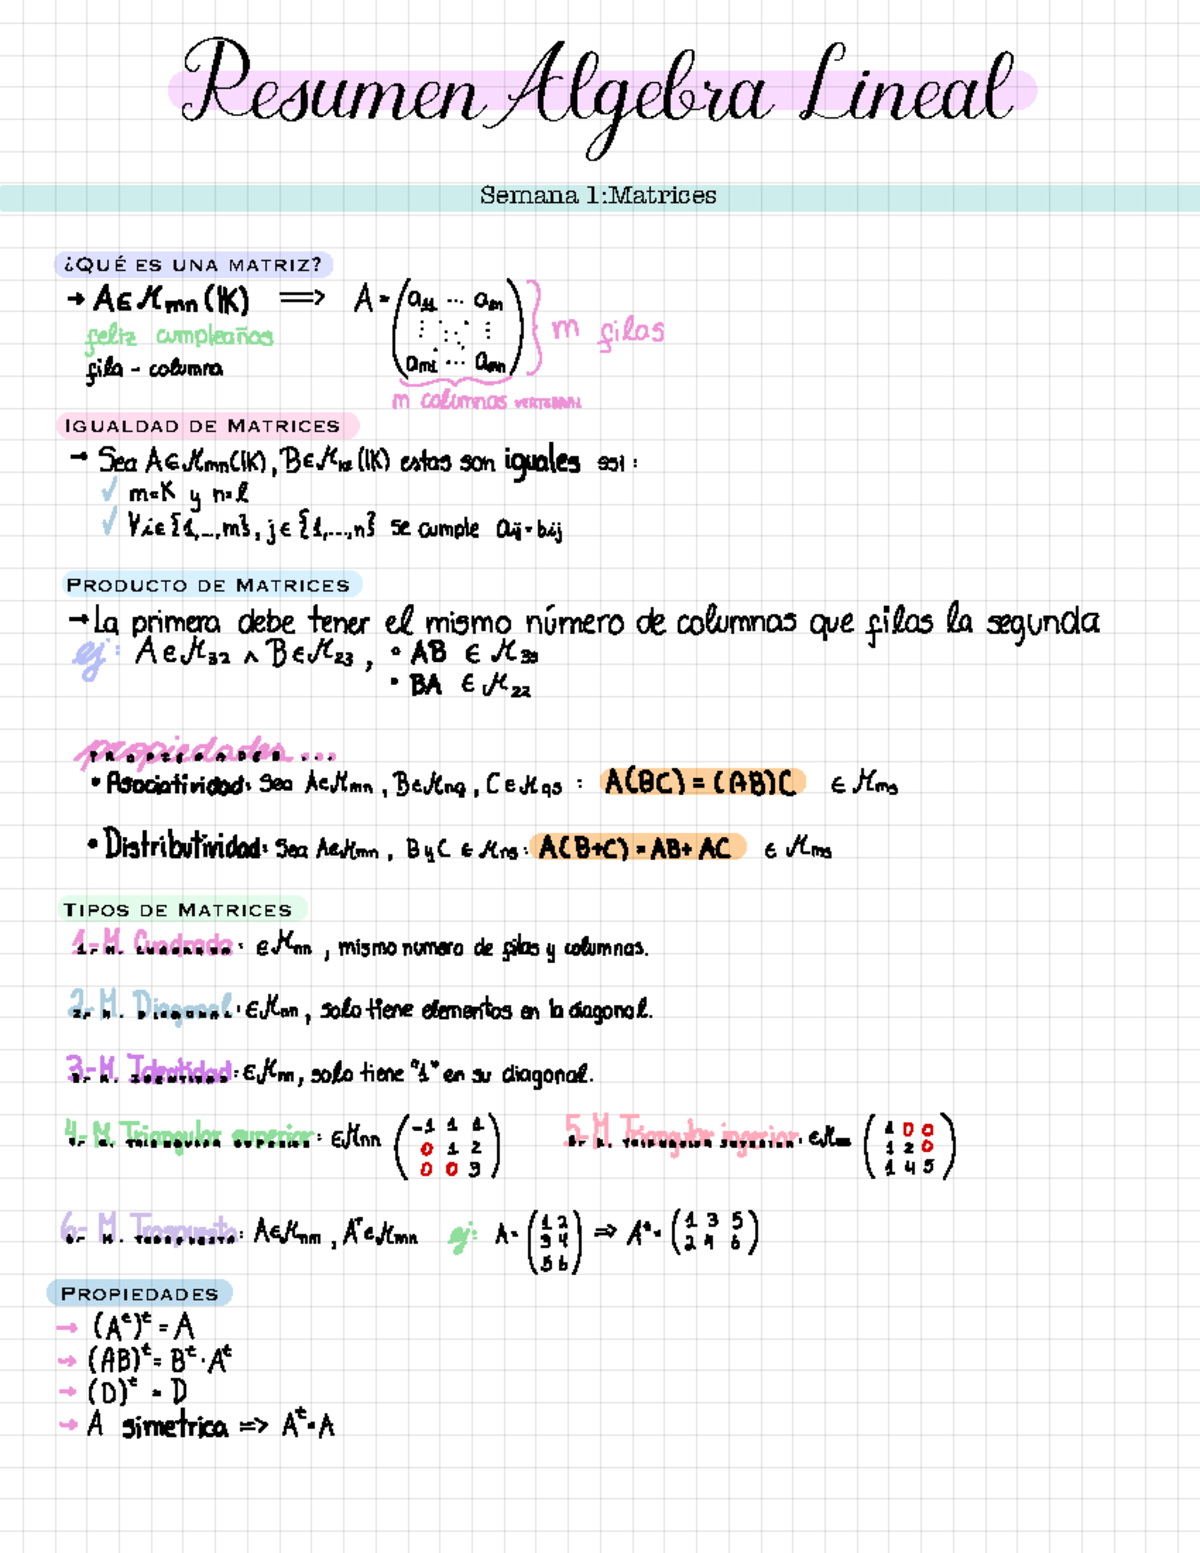 Resumen Algebra Lineal
Semana 1:Matrices
¿QUÉ ES UNA MATRIZ?
→ A∈Mmn(IK) ⟹ A = (a11 ... a1n
⋮ ⋱ ⋮
am1 ... amn) } m filas
feliz cumpleaños
fila - columna
m columnas
IGUALDAD DE MATRICES
→ Sea A∈Mmn(IK), B∈Mkl(IK) estas son iguales ssi:
✓ m=K y n=l
✓ ∀i∈{1,...,m}, j∈{1,...,n} se cumple aij=bij
PRODUCTO DE MATRICES
→ La primera debe tener el mismo número de columnas que filas la segunda
ej: A∈M32 ∧ B∈M23, • AB ∈ M33
• BA ∈ M22
propiedades ...
• Asociatividad: Sea A∈Mmn, B∈Mnq, C∈Mqs : A(BC) = (AB)C ∈ Mms
• Distributividad: Sea A∈Mmn, B y C ∈ Mns: A(B+C) = AB+ AC ∈ Mms
TIPOS DE MATRICES
1-M. Cuadrada: ∈Mnn, mismo numero de filas y columnas.
2-M. Diagonal: ∈Mnn, solo tiene elementos en la diagonal.
3-M. Identidad: ∈Mnn, solo tiene "1" en su diagonal.
4-M. Triangular superior: ∈Mnn (-1 1 1
0 1 2
0 0 3)
5-M Triangular inferior: ∈Mnn (1 0 0
1 2 0
1 4 5)
6- M. Traspuesta: A∈Mnm, Aᵗ∈Mmn ej: A= (1 2
3 4
5 6) ⇒ Aᵗ= (1 3 5
2 4 6)
PROPIEDADES
→ (Aᵗ)ᵗ = A
→ (AB)ᵗ = Bᵗ·Aᵗ
→ (D)ᵗ = D
→ A simetrica => Aᵗ=A